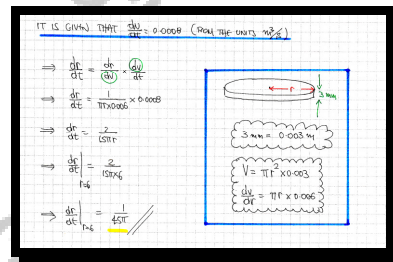 IT IS GIVEN THAT dv/dt = 0.0008 (FROM THE UNITS m³/s)
⇒ dr/dt = dr/dv × dv/dt
⇒ dr/dt = 1/(πr×0.006) × 0.0008
⇒ dr/dt = 2/(15πr)
⇒ dr/dt|r=6 = 2/(15π×6)
⇒ dr/dt|r=6 = 1/(45π)
r
3 mm
3 mm = 0.003 m
V = πr² × 0.003
dv/dr = πr × 0.006